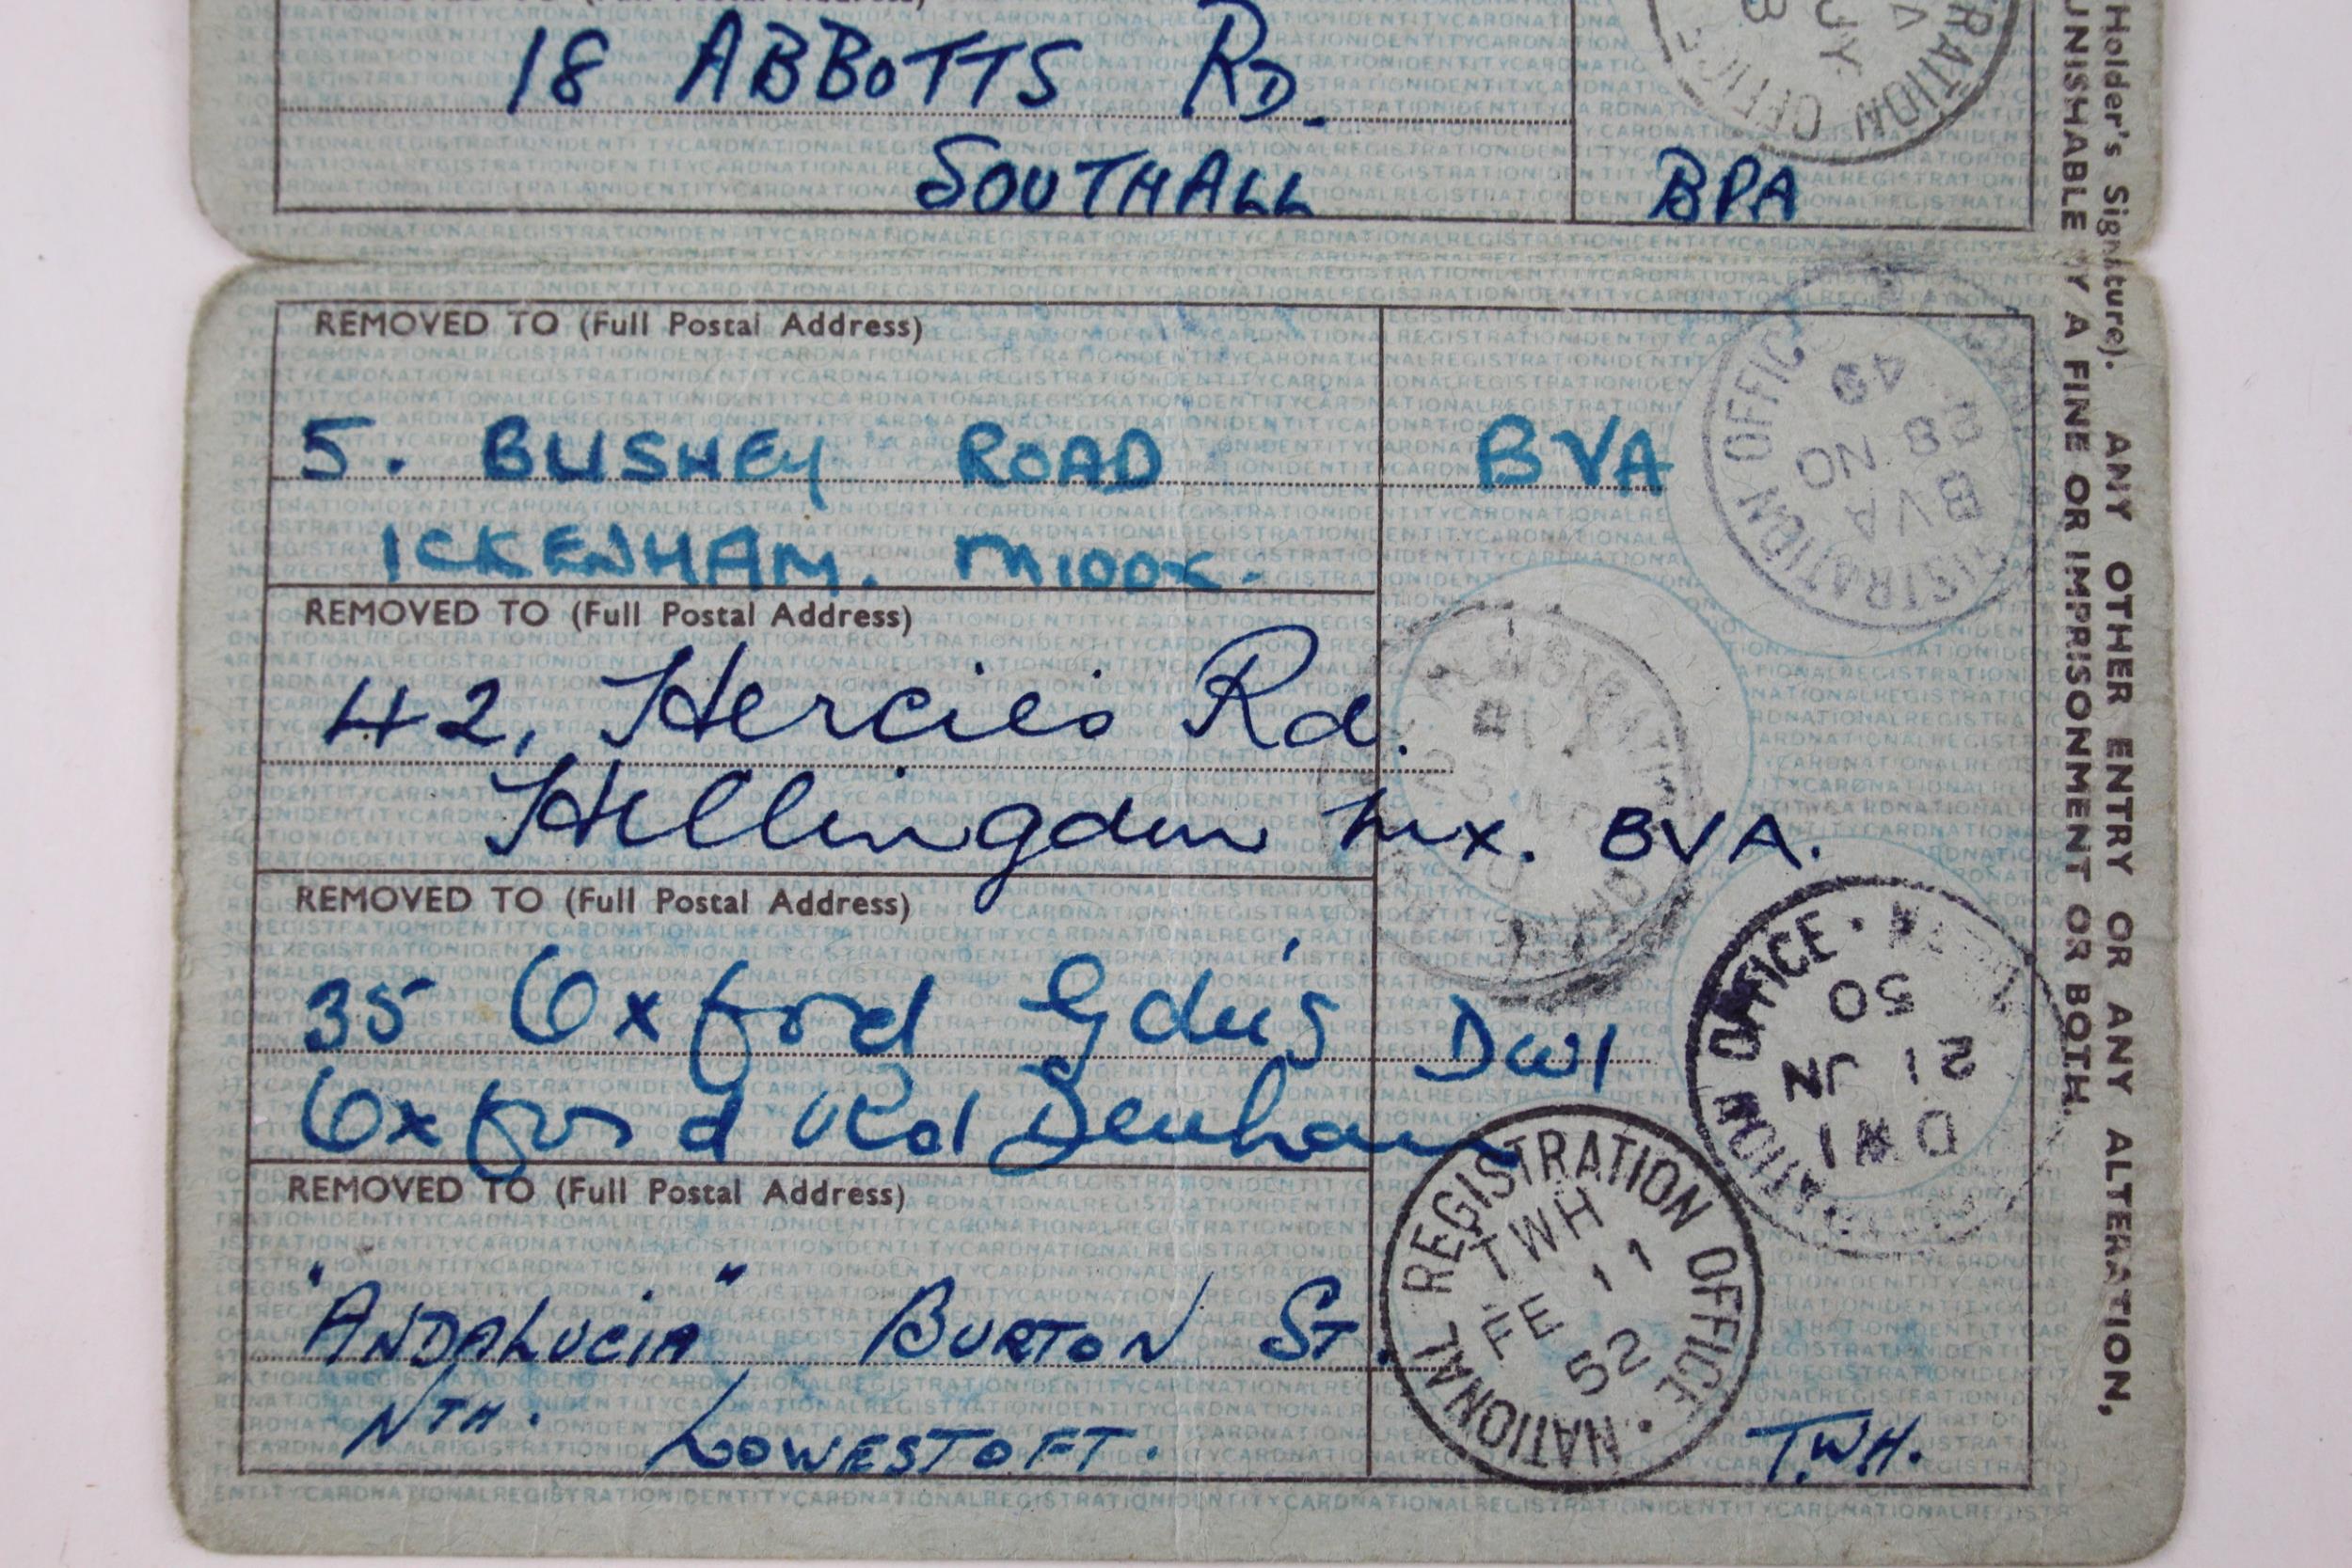 (Full Postal Address)
18 ABBOTTS RD.
SOUTHALL
BPA
REMOVED TO (Full Postal Address)
5. BUSHEY ROAD
BVA
ICKENHAM. MIDDX.
REMOVED TO (Full Postal Address)
42, Hercies Rd.
Hillingdon Mx. BVA.
REMOVED TO (Full Postal Address)
35 Oxford Gdns
DW1
Oxford Rd Denham
REMOVED TO (Full Postal Address)
"ANDALUCIA" BURTON ST.
NTH. LOWESTOFT.
T.W.H.
REGISTRATION OFFICE
BVA
8 NO
49
REGISTRATION
OFFICE
DW1
21 JN
50
NATIONAL REGISTRATION OFFICE
TWH
FE 11
52
Holder's Signature). ANY OTHER ENTRY OR ANY ALTERATION,
PUNISHABLE BY A FINE OR IMPRISONMENT OR BOTH.